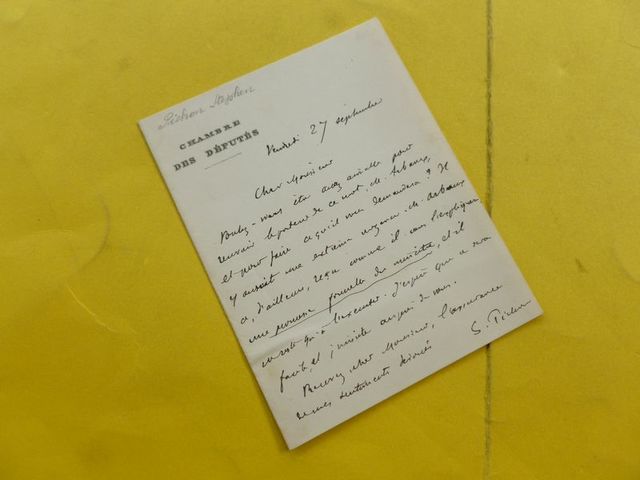 Pichon Stephen
CHAMBRE
DES DÉPUTÉS
Vendredi 27 septembre
Cher Monsieur
Voulez-vous être assez aimable pour
recevoir le porteur de ce mot, M. Arbaux,
et pour faire ce qu'il vous demandera? Il
y aurait une extrême urgence. M. Arbaux
a, d'ailleurs, reçu comme il vous l'expliquera
une promesse formelle du ministre, et il
ne reste qu'à l'exécuter. J'espère que ce sera
facile, et j'insiste auprès de vous.
Recevez, cher Monsieur, l'assurance
de mes sentiments dévoués
S. Pichon